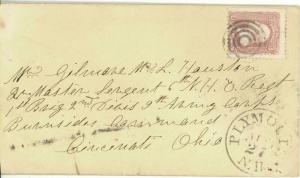 Mr Gilmore McL. Houston
Qr Master Sergent 6th N.H.V. Regt
1st Brig 2nd Divis 9th Army Corps
Burnsides Command
Cincinnati Ohio
PLYMOUTH
27
N.H.